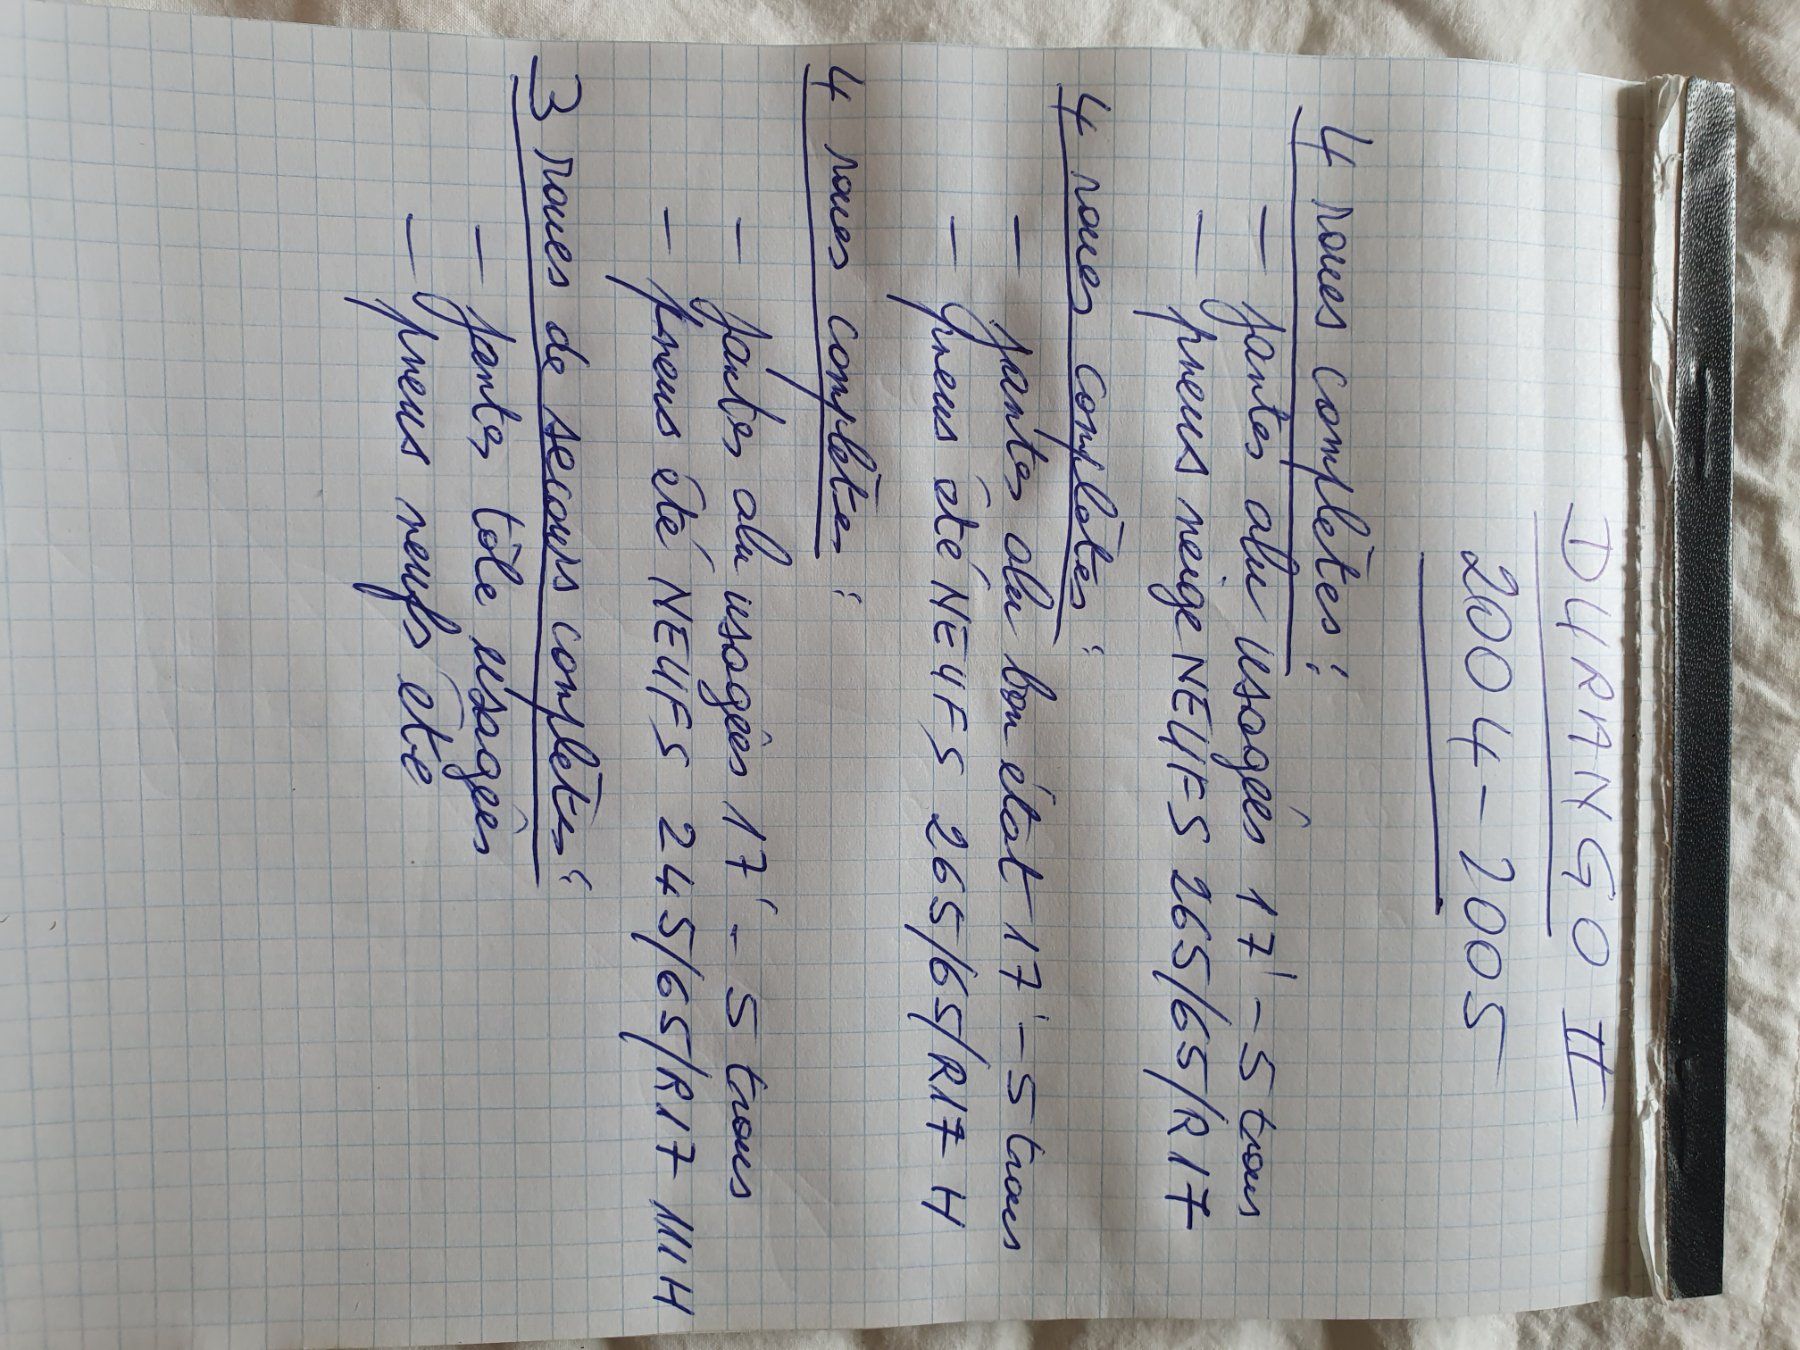 DURANGO II
2004-2005
4 roues complètes:
- jantes alu usagées 17' - 5 trous
- pneus neige NEUFS 265/65/R17
4 roues complètes:
- jantes alu bon état 17' - 5 trous
- pneus été NEUFS 265/65/R17 H
4 roues complètes:
- jantes alu usagées 17' - 5 trous
- pneus été NEUFS 245/65/R17 111H
3 roues de secours complètes:
- jantes tôle usagées
- pneus neufs été